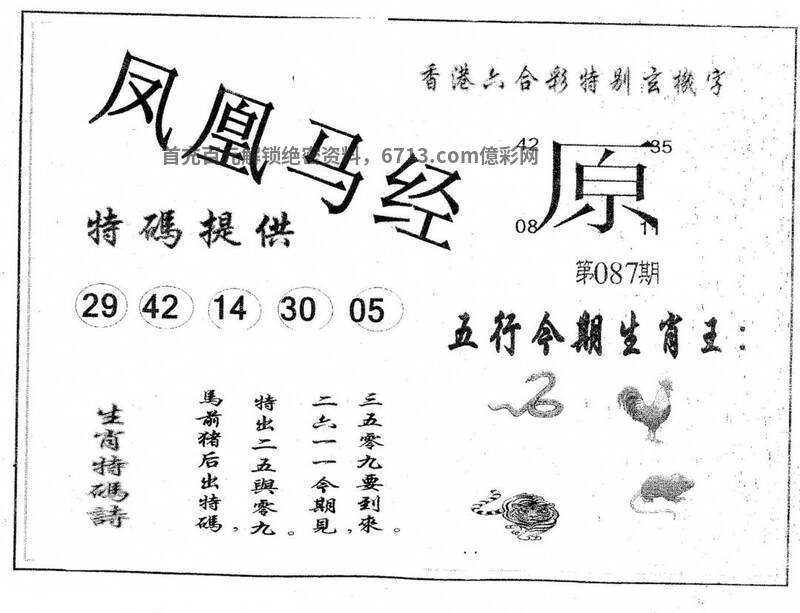 香港六合彩特别玄機字
凤凰马经
首充百元解锁绝密资料，6713.com億彩网
42 35
原
08 11
特碼提供
第087期
29 42 14 30 05
五行今期生肖王：
三五零九要到來。
二六一一今期見，
特出二五與零九。
馬前猪后出特碼，
生肖特碼詩